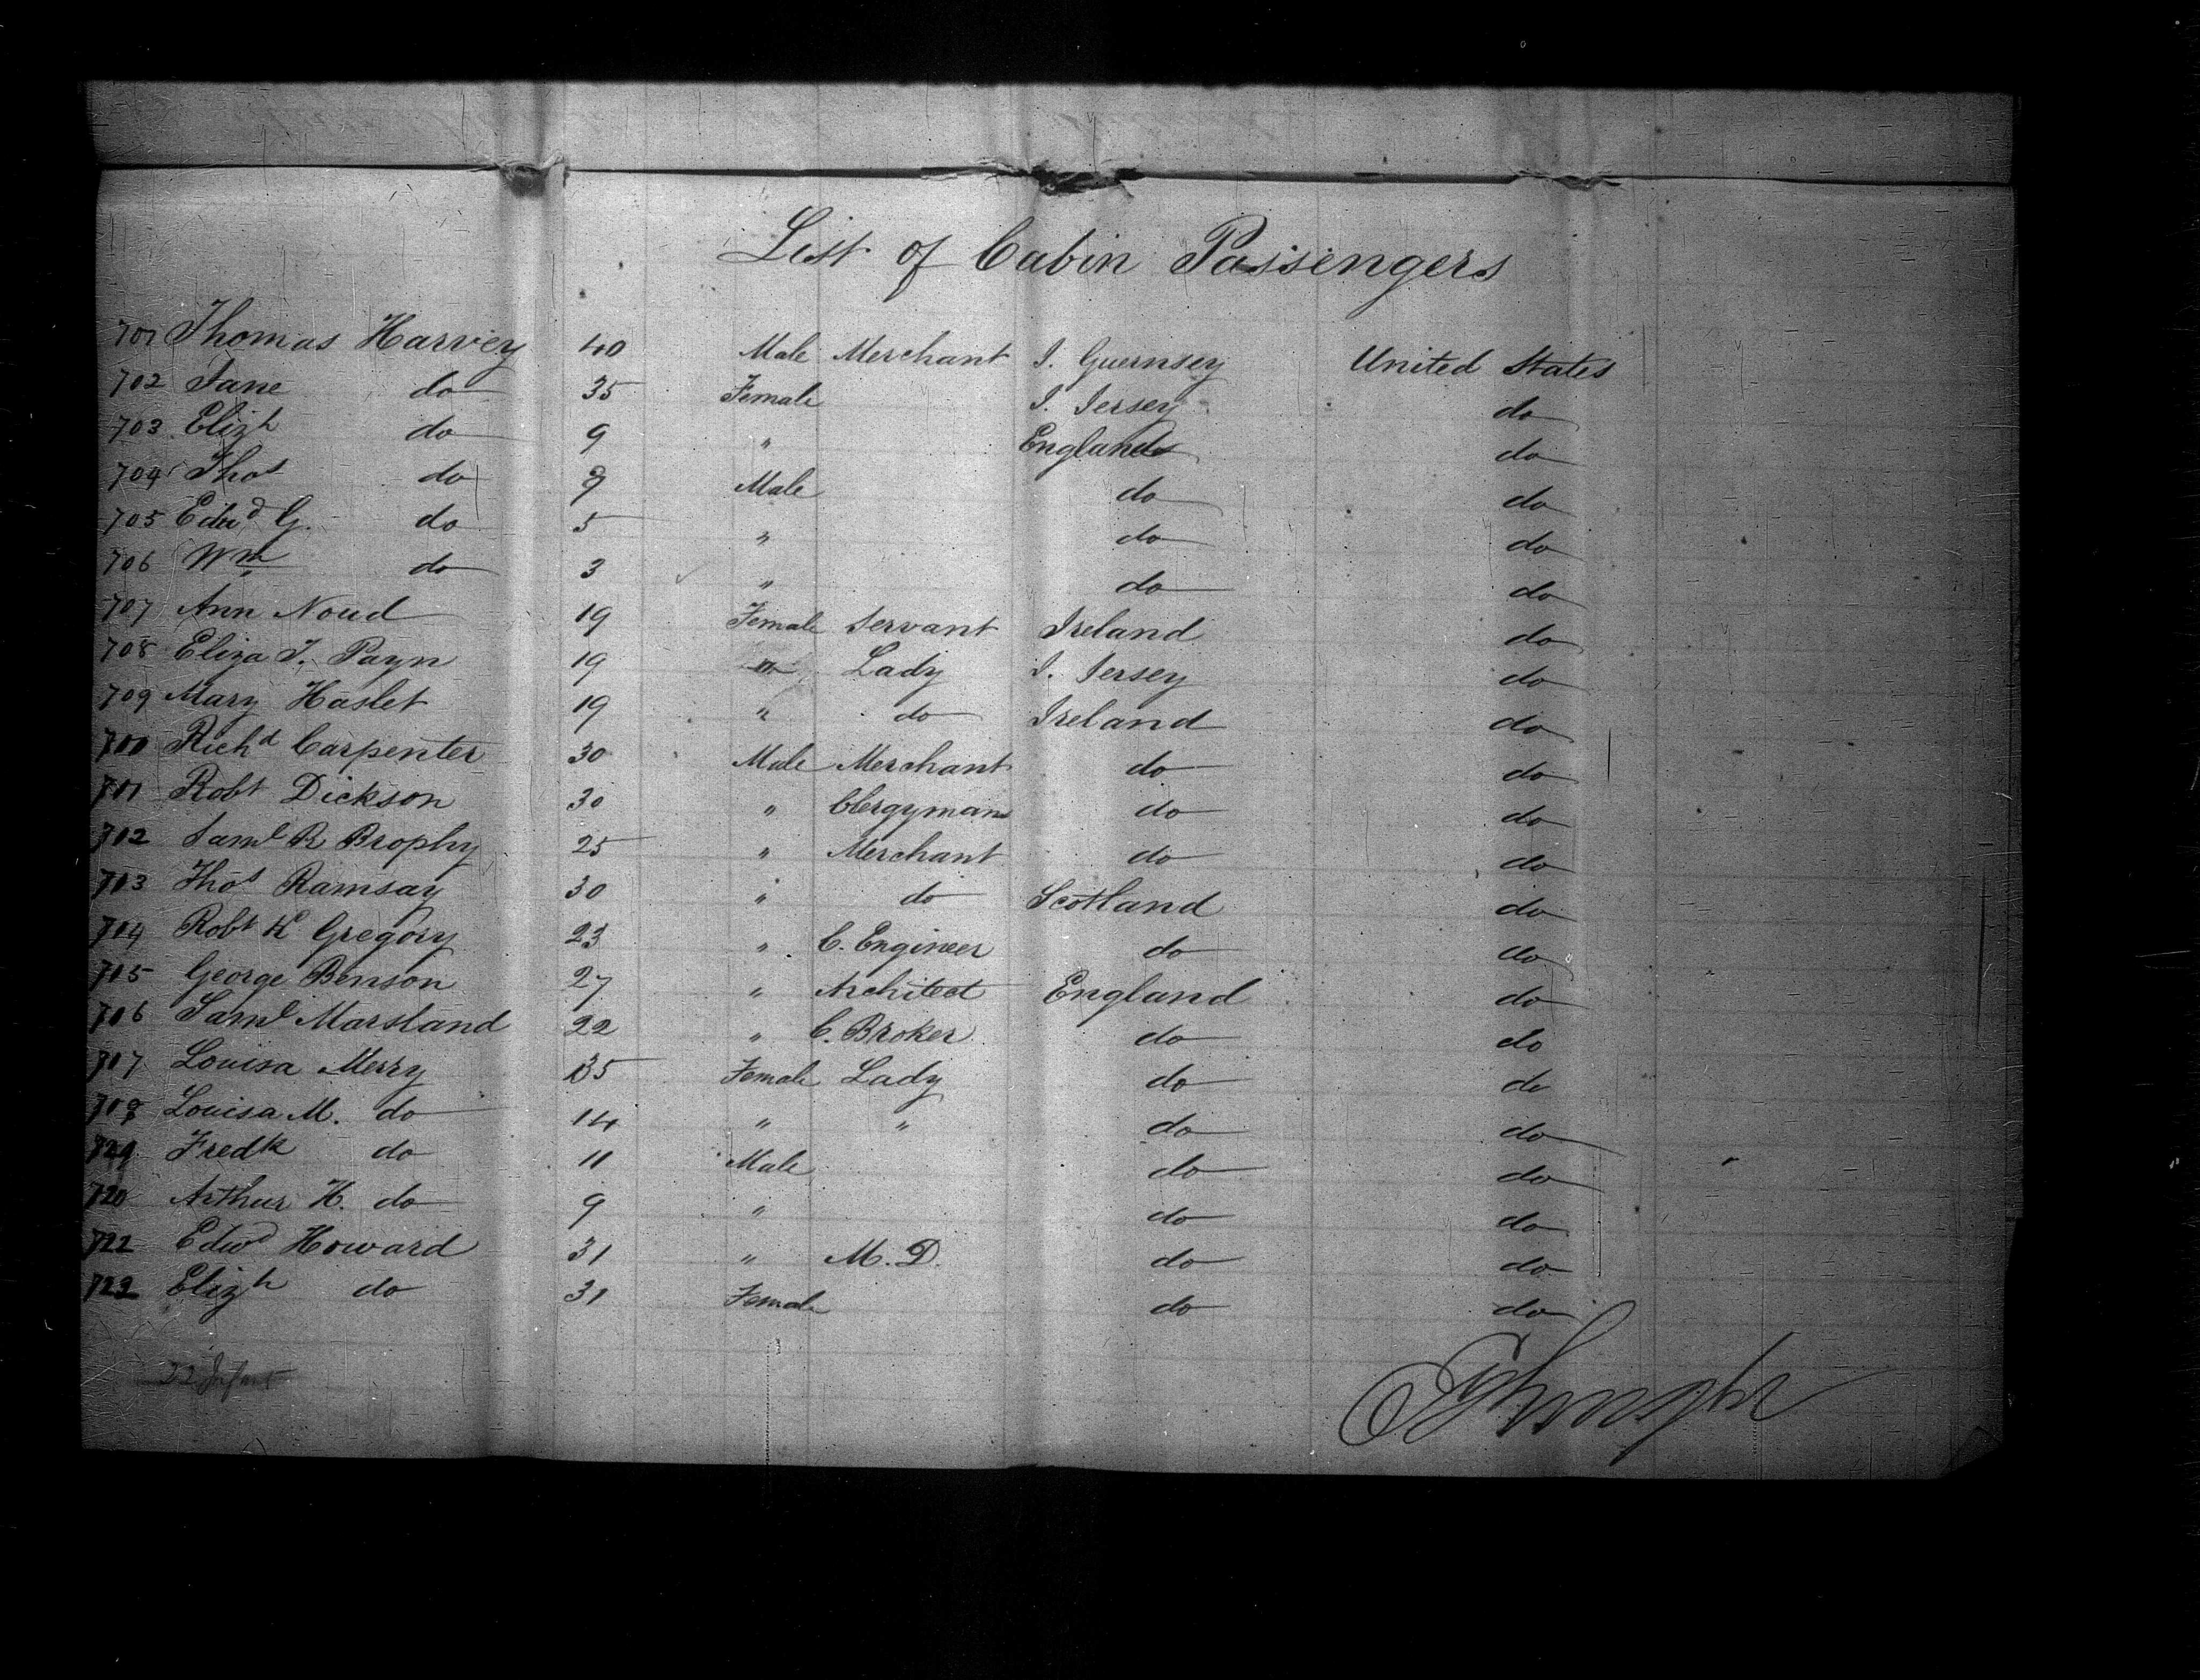 List of Cabin Passengers
701 Thomas Harvey 40 Male Merchant I. Guernsey United States
702 Jane do 35 Female I. Jersey do
703 Elizh do 9 " England do
704 Thos do 7 Male do do
705 Edwd G. do 5 " do do
706 Wm do 3 " do do
707 Ann Noud 19 Female Servant Ireland do
708 Eliza J. Payn 19 " Lady I. Jersey do
709 Mary Haslet 19 " do Ireland do
710 Richd Carpenter 30 Male Merchant do do
711 Robt Dickson 30 " Clergyman do do
712 Saml R Brophy 25 " Merchant do do
713 Thos Ramsay 30 " do Scotland do
714 Robt H Gregory 23 " C. Engineer do do
715 George Benson 27 " Architect England do
716 Saml Marsland 22 " C. Broker do do
717 Louisa Merry 35 Female Lady do do
718 Louisa M. do 14 " " do do
Fredk do 11 Male do do
720 Arthur H. do 9 " do do
722 Edwd Howard 31 " M.D. do do
Elizh do 31 Female do do